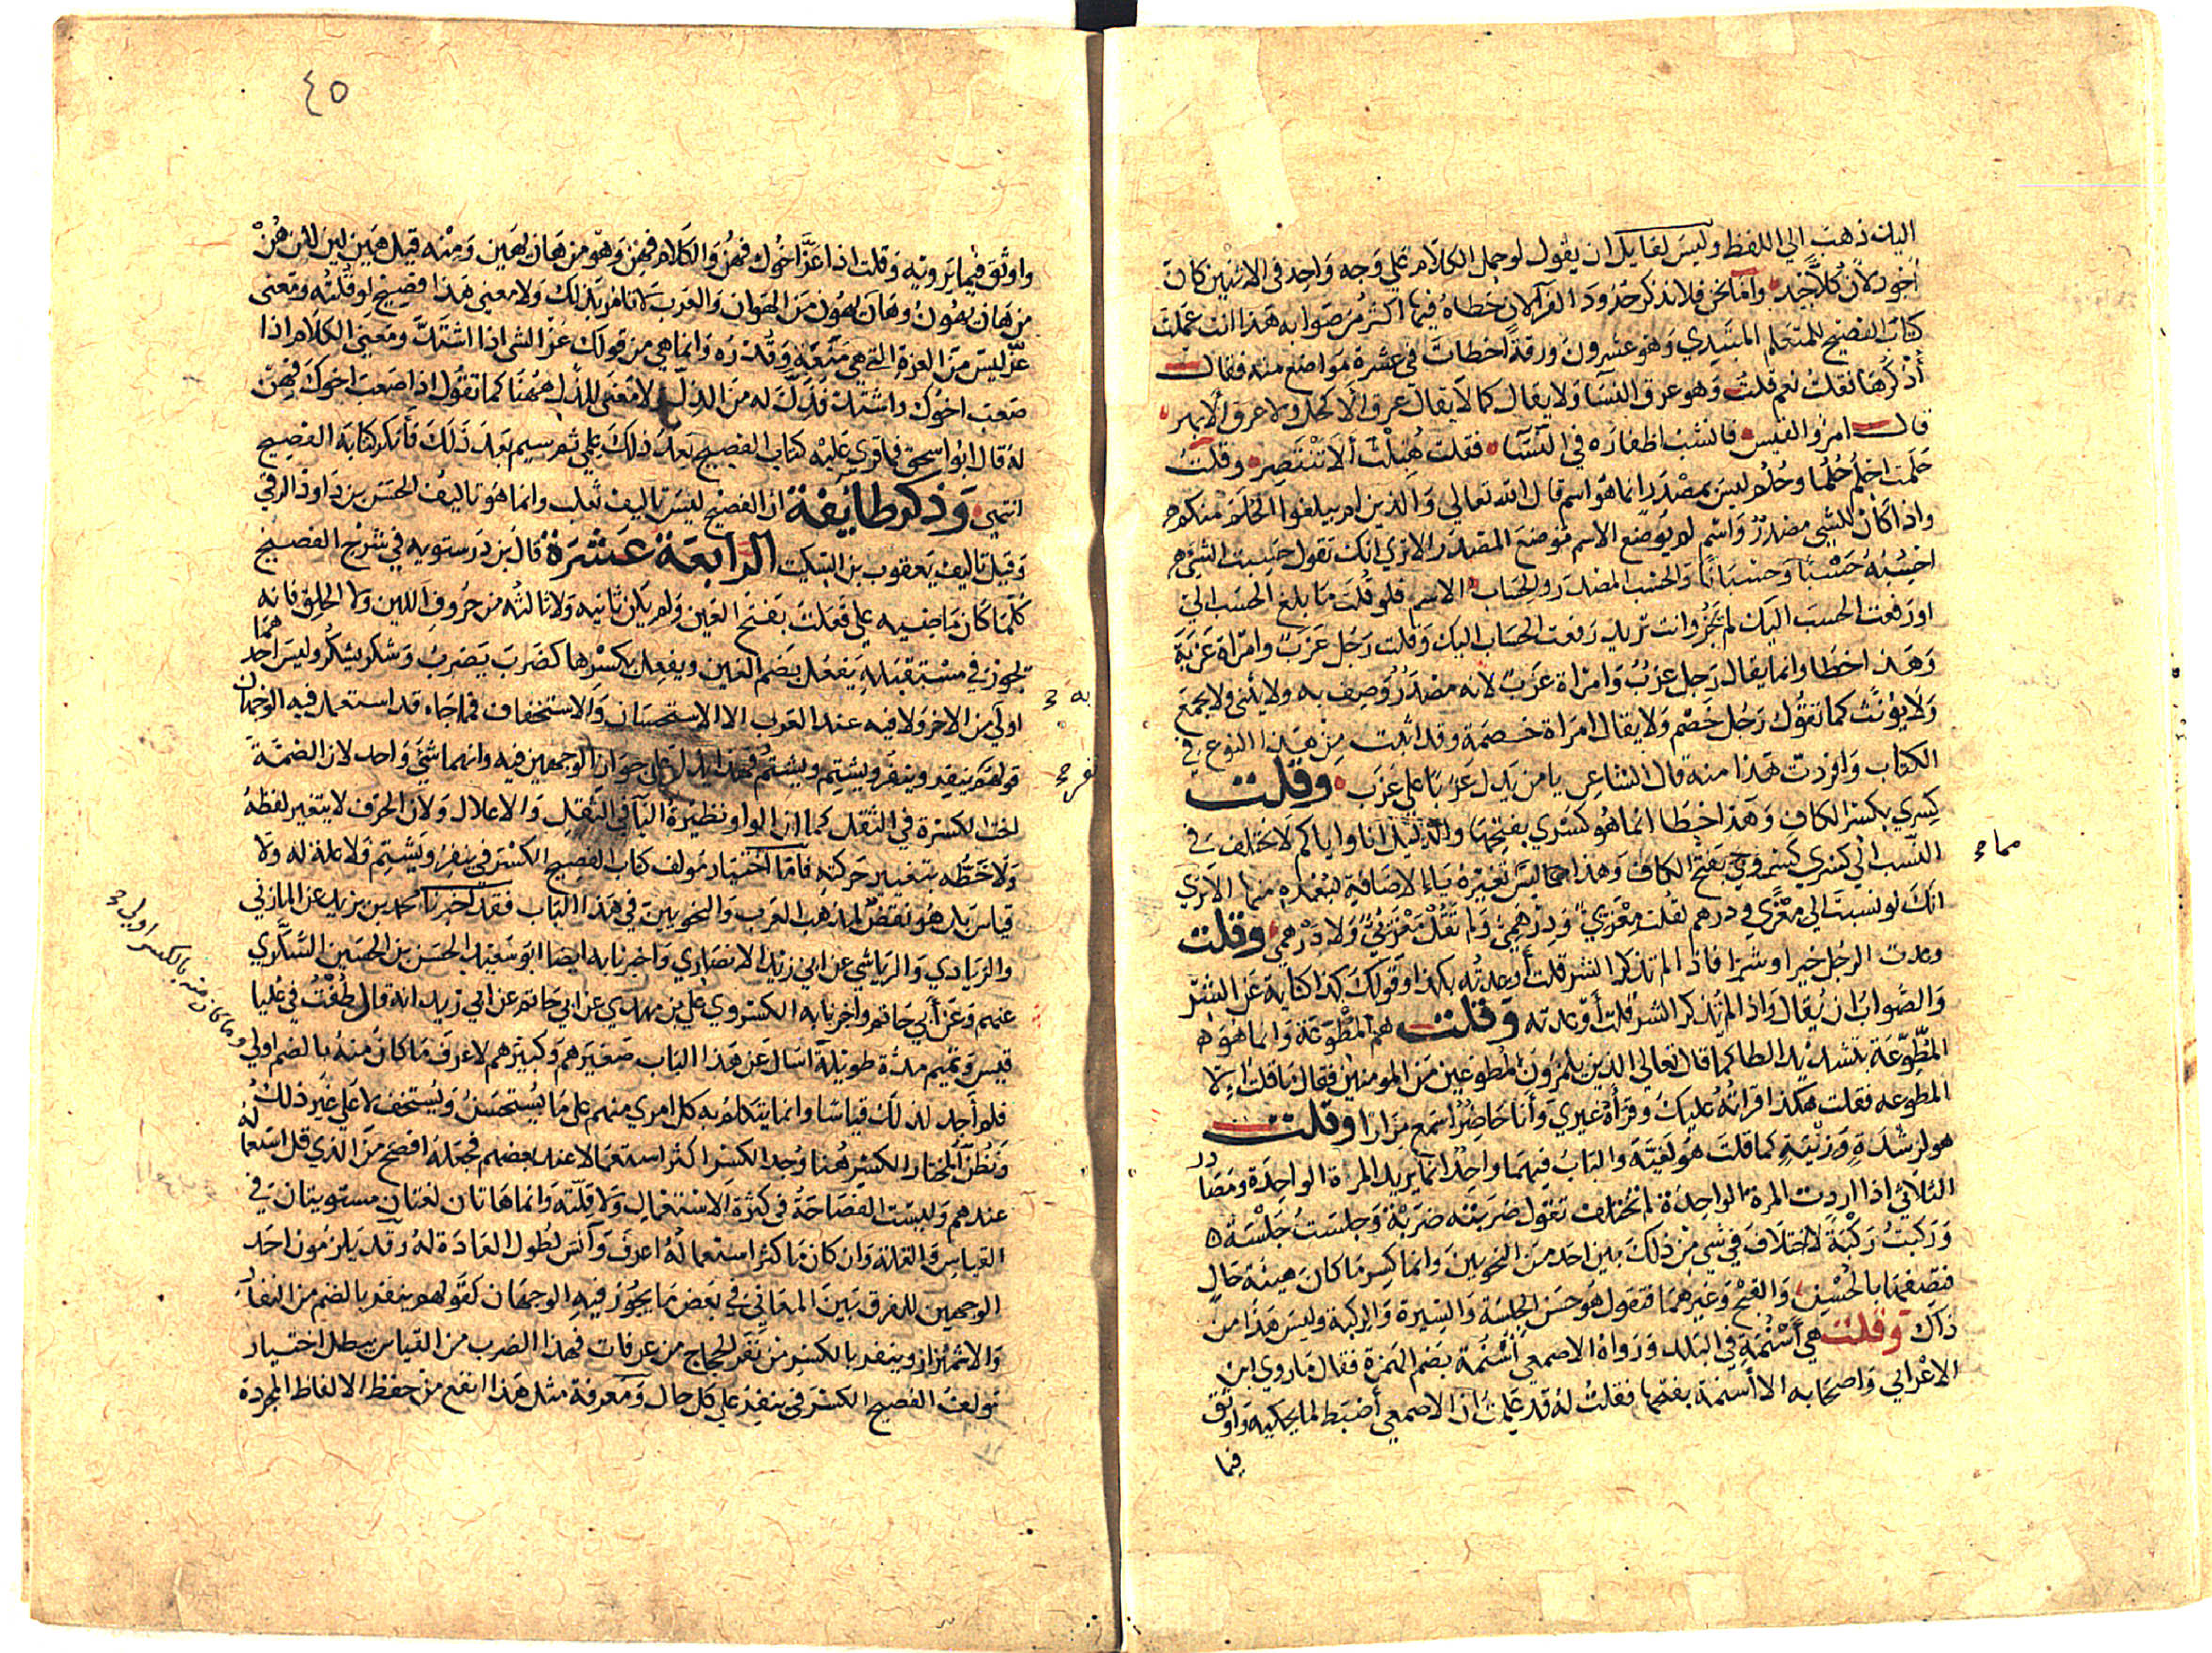 اليك ذهب الي اللفظ وليس لقايل ان يقول لو حمل الكلام علي وجه واحد في الاثنين كان
اجود لان كلا جيد وامانحن فلا نذكر حدود الفرا لان خطاه فيها اكثر من صوابه هذا انت عملت
كتاب الفصيح للمتعلم المبتدي وهو عشرون ورقة اخطات في عشرة مواضع منه فقال
أذكرها فقلت نعم قلت وهو عرق النسا ولا يقال كما لا يقال عرق الاكحل ولا عرق الابهر
قال امرؤ القيس فانشب اظفاره في النسا فقلت هبلت ألا تنتصر وقلت
حلمت احلم حلما وحلم ليس بمصدر انما هو اسم قال الله تعالي والذين لم يبلغوا الحلم منكم
واذا كان للشي مصدر واسم لم يوضع الاسم موضع المصدر الاتري انك تقول حسبت الشي
احسبه حسبا وحسبانا والحسب المصدر والحساب الاسم فلو قلت ما بلغ الحسب الي
او رفعت الحسب اليك لم يجز وانت تريد رفعت الحساب اليك وقلت رجل عزب وامراة عزبة
وهذا خطا وانما يقال رجل عزب وامراة عزب لانه مصدر وصف به ولا يثني ولا يجمع
ولا يونث كما تقول رجل خصم ولا يقال امراة خصمة وقد اثبت من هذا النوع في
الكتاب وافردت هذا منه قال الشاعر يا من يدل عزبا علي عزب وقلت
كسري بكسر الكاف وهذا خطا انما هو كسري بفتحها والدليل انا واياكم لا نختلف في
النسب الي كسري كسروي بفتح الكاف وهذا مما ليس تغيره ياء الاضافة لبعده منها الاتري
مما
انك لو نسبت الي معزي ودرهم لقلت معزي ودرهمي ولم تقل معزي ولا درهمي وقلت
وعدت الرجل خيرا وشرا فاذا لم تذكر الشر قلت أوعدته بكذا وقولك كذا كناية عن الشر
والصواب ان يقال واذا لم تذكر الشر قلت أوعدته وقلت هم المطوعة وانما هو
المطوعة بتشديد الطا كما قال تعالي الذين يلمزون المطوعين من المومنين فقال ما قلت الا
المطوعه فقلت هكذا قراته عليك وقرأه غيري وأنا حاضر اسمع مرارا وقلت
هو لرشدة وزنية كما قلت هو لغية والباب فيهما واحد انما يريد المرة الواحدة ومصادر
الثلاثي اذا اردت المرة الواحدة لم تختلف تقول ضربته ضربة وجلست جلسة
وركبت ركبة لا اختلاف في شي من ذلك بين احد من النحويين وانما كسر ما كان هيئة حال
فتصفها بالحسن والقبح وغيرهما فتقول هو حسن الجلسة والسيرة والركبة وليس هذا من
ذاك وقلت هي أسنمة في البلد ورواه الاصمعي أسنمة بضم الهمزة فقال ما روي ابن
الاعرابي واصحابه الا أسنمة بفتحها فقلت له قد علمت ان الاصمعي أضبط لما يحكيه واوثق
فيما
٤٥
واوثق فيما يرويه وقلت اذا عز اخوك فهن والكلام فهن وهو من هان يهين ومنه قيل هين لين لان هن
من هان يهون وهان يهون من الهوان والعرب لا تامر بذلك ولا معني هذا فصيح لو قلته ومعني
عز ليس من العزة التي هي منعة وقدرة وانما هي من قولك عز الشي اذا اشتد ومعني الكلام اذا
صعب اخوك واشتد فذل له من الذل ولا معني للذل ههنا كما تقول اذا صعب اخوك فهن
له قال ابو اسحق فما قري عليه كتاب الفصيح بعد ذلك علمي ثم سيم بعد ذلك فأنكر كتابه الفصيح
انتهي وذكر طايفة ان الفصيح ليس تاليف ثعلب وانما هو تاليف الحسن بن داود الرقي
وقيل تاليف يعقوب بن السكيت الرابعة عشرة قال بن درستويه في شرح الفصيح
كلما كان ماضيه علي فعلت بفتح العين ولم يكن ثانيه ولا ثالثه من حروف اللين ولا الحلق فانه
يجوز في مستقبله يفعل بضم العين ويفعل بكسرها كضرب يضرب وشكر يشكر وليس احدهما
به
اولي من الاخر ولا فيه عند العرب الا الاستحسان والاستخفاف فما جاء قد استعمل فيه الوجهان
قولهم ينفر وينفر ويشتم ويشتم فهذا يدل علي جواز الوجهين فيه وانهما شي واحد لان الضمة
اخت الكسرة في الثقل كما ان الواو نظيرة اليا في الثقل والاعلال ولان الحرف لا يتغير لفظه
ولا خطه بتغيير حركته فاما اختيار مولف كتاب الفصيح الكسر في ينفر ويشتم فلا علة له ولا
قياس بل هو نقض لمذهب العرب والنحويين في هذا الباب فقد اخبرنا محمد بن يزيد عن المازني
والزيادي والرياشي عن ابي زيد الانصاري واخبرنا به ايضا ابو سعيد الحسن بن الحسين السكري
عنهم وعن أبي حاتم واخبرنا به الكسروي علي بن مهدي عن ابي حاتم عن ابي زيد انه قال طفت في عليا
قيس وتميم مدة طويلة اسال عن هذا الباب صغيرهم وكبيرهم لاعرف ما كان منه بالضم اولي
وما كان منه بالكسر اولي
فلم أجد لذلك قياسا وانما يتكلم به كل امري منهم علي ما يستحسن ويستخف لا علي غير ذلك
ونظن المختار الكسر هنا وجد الكسر اكثر استعمالا عند بعضهم فجعله افصح من الذي قل استعماله
عندهم وليست الفصاحة في كثرة الاستعمال ولا قلته وانما هاتان لغتان مستويتان في
القياس والعلة وان كان ما كثر استعماله اعرف وآنس لطول العادة له وقد يلزمون احد
الوجهين للفرق بين المعاني في بعض ما يجوز فيه الوجهان كقولهم ينفر بالضم من النفار
والاشمئزاز وينفر بالكسر من نفر الحجاج من عرفات فهذا الضرب من القياس يبطل اختيار
مولف الفصيح الكسر في ينفر علي كل حال ومعرفة مثل هذا انفع من حفظ الالفاظ المجردة